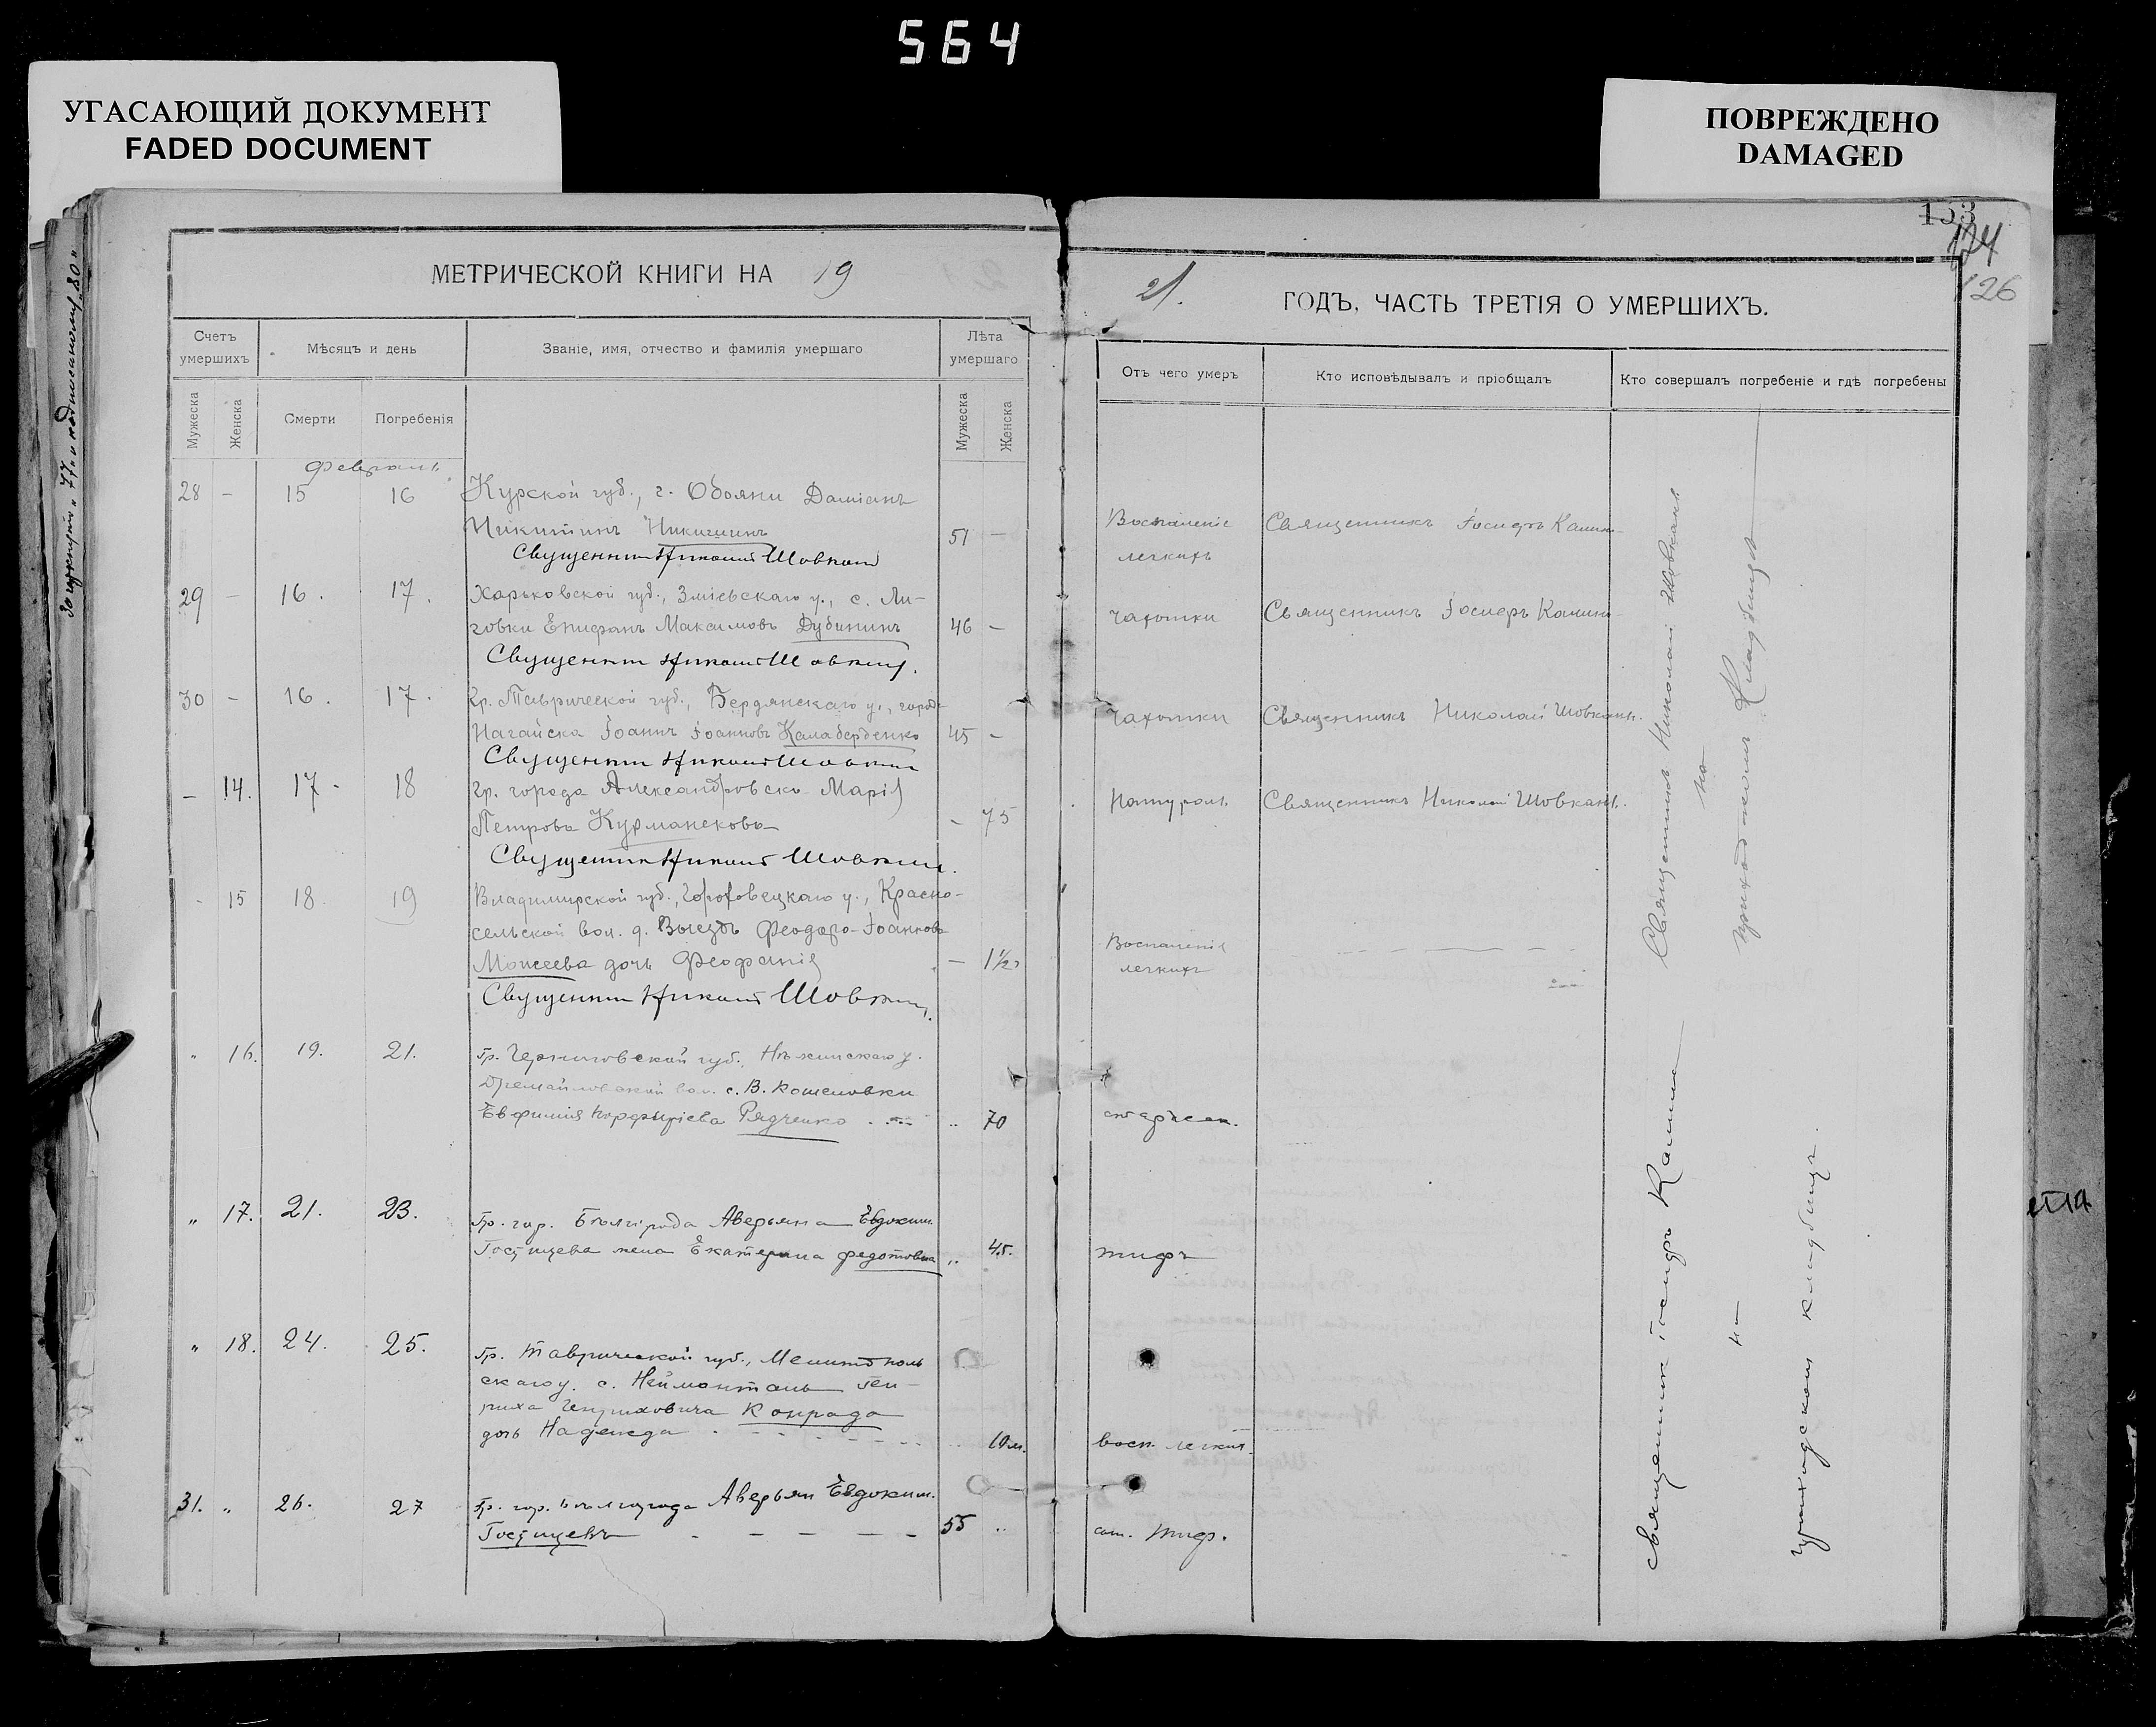 564
УГАСАЮЩИЙ ДОКУМЕНТ
FADED DOCUMENT
ПОВРЕЖДЕНО
DAMAGED
153
126
МЕТРИЧЕСКОЙ КНИГИ НА 19
21. ГОДЪ, ЧАСТЬ ТРЕТІЯ О УМЕРШИХЪ.
Счетъ умершихъ
Мѣсяцъ и день
Званіе, имя, отчество и фамилія умершаго
Лѣта умершаго
Отъ чего умеръ
Кто исповѣдывалъ и пріобщалъ
Кто совершалъ погребеніе и гдѣ погребены
Мужеска
Женска
Смерти
Погребенія
Мужеска
Женска
Февраль
28 - 15 16 Курской губ., г. Обояни Даміанъ
Никитинъ Никишинъ 51 - Воспаленіе Священникъ Іосифъ Калин-
Священник Николай Шовкан легкихъ
29 - 16. 17. Харьковской губ., Зміевскаго у., с. Ли-
говки Епифанъ Максимовъ Дубининъ 46 - чахотки Священникъ Іосифъ Калин-
Священник Николай Шовкан.
30 - 16. 17. Гр. Таврической губ., Бердянскаго у., город-
Нагайска Іоаннъ Іоанновъ Калаберденко 45 - чахотки Священникъ Николай Шовкань.
Священник Николай Шовкан
- 14. 17- 18 Гр. города Александровска Марія
Петрова Курманскова - 75 Натурал. Священникъ Николай Шовкань.
Священник Николай Шовкан.
- 15 18. 19 Владимирской губ., Гороховецкаго у., Красно-
сельской вол. д. Выездъ Феодора Іоаннова
Моисеева дочь Феофанія - 1½ Воспаленія легкихъ
Священник Николай Шовкан.
" 16. 19. 21. Гр. Черниговской губ., Нѣжинскаго у.
Дремайловской вол. с. В. Кошелевки
Евфимія Порфиріева Радченко .. 70 старости.
" 17. 21. 23. Гр. гор. Бѣлгорода Аверьяна Евдоким.
Гостищева жена Екатерина Федотовна „ 45. тифъ
" 18. 24. 25. Гр. Таврической губ., Мелитополь
скаго у. с. Неймонталь Ген-
риха Генриховича Конрада
дочь Надежда .. 10 м. восп. легких.
31. " 26. 27 Гр. гор. Бѣлгорода Аверьян Евдоким.
Гостищевъ 55 .. сып. тиф.
Священникъ Николай Шовкань
на
приходскомъ Кладбищѣ
Священник Іосифъ Калин
на
приходском кладбищѣ.